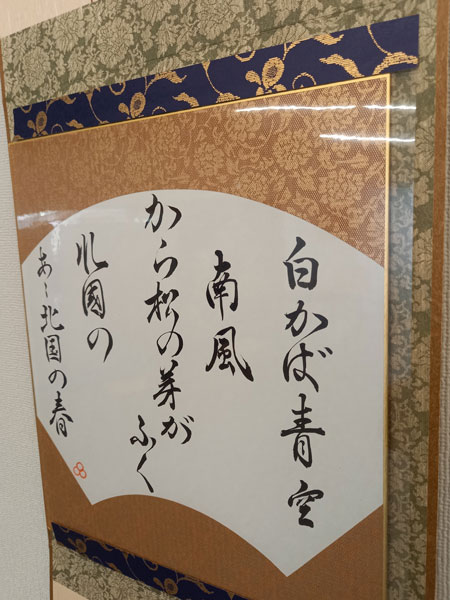 白かば青空
南風
から松の芽が
ふく
北國の
あゝ北国の春